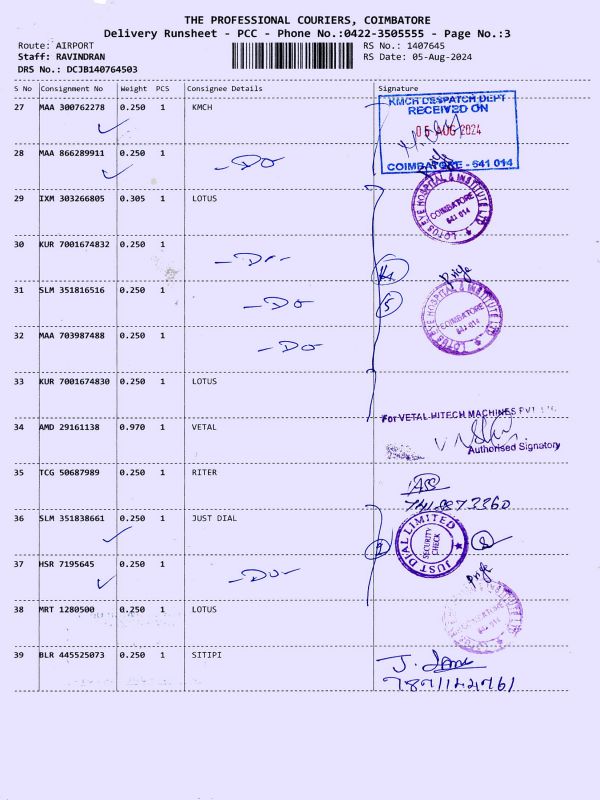 THE PROFESSIONAL COURIERS, COIMBATORE
Delivery Runsheet - PCC - Phone No.:0422-3505555 - Page No.:3
Route: AIRPORT RS No.: 1407645
Staff: RAVINDRAN RS Date: 05-Aug-2024
DRS No.: DCJB140764503
S No Consignment No Weight PCS Consignee Details Signature
27 MAA 300762278 0.250 1 KMCH
KMCH DESPATCH DEPT
RECEIVED ON
05 AUG 2024
COIMBATORE - 641 014
28 MAA 866289911 0.250 1 -Do-
29 IXM 303266805 0.305 1 LOTUS
LOTUS EYE HOSPITAL & INSTITUTE LTD
COIMBATORE
641 014
30 KUR 7001674832 0.250 1 -Do-
31 SLM 351816516 0.250 1 -Do-
Priya
5
LOTUS EYE HOSPITAL & INSTITUTE LTD
COIMBATORE
641 014
32 MAA 703987488 0.250 1 -Do-
33 KUR 7001674830 0.250 1 LOTUS
34 AMD 29161138 0.970 1 VETAL
For VETAL HITECH MACHINES PVT LTD
Authorised Signatory
35 TCG 50687989 0.250 1 RITER
36 SLM 351838661 0.250 1 JUST DIAL
JUST DIAL LIMITED
SECURITY
CHECK
37 HSR 7195645 0.250 1 -Do-
Priya
38 MRT 1280500 0.250 1 LOTUS
COIMBATORE
39 BLR 445525073 0.250 1 SITIPI